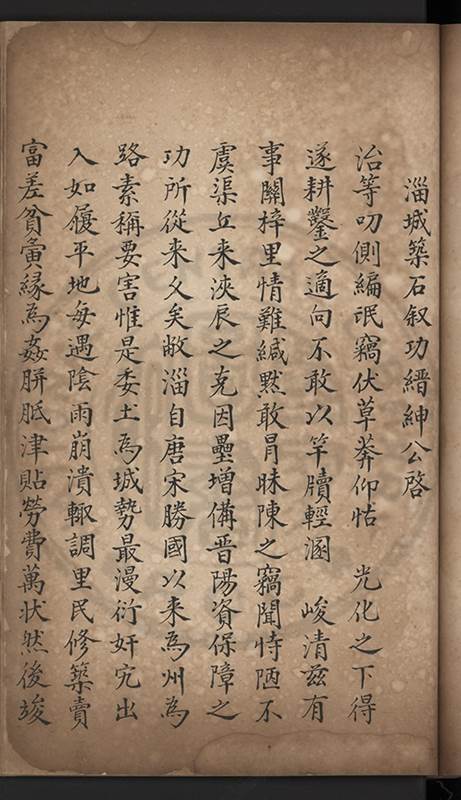 淄城築石叙功縉紳公啓
治等叨側編氓竊伏草莽仰怙　光化之下得
遂耕鑿之適向不敢以竿牘輕溷　峻清兹有
事關梓里情難緘默敢冐昧陳之竊聞恃陋不
虞渠丘來浹辰之克因壘增備晋陽資保障之
功所從来久矣敝淄自唐宋勝國以来為州為
路素稱要害惟是委土為城勢最漫衍奸宄出
入如履平地每遇陰雨崩潰輙調里民修築賣
富差貧夤緣為姦胼胝津貼勞費萬状然後竣